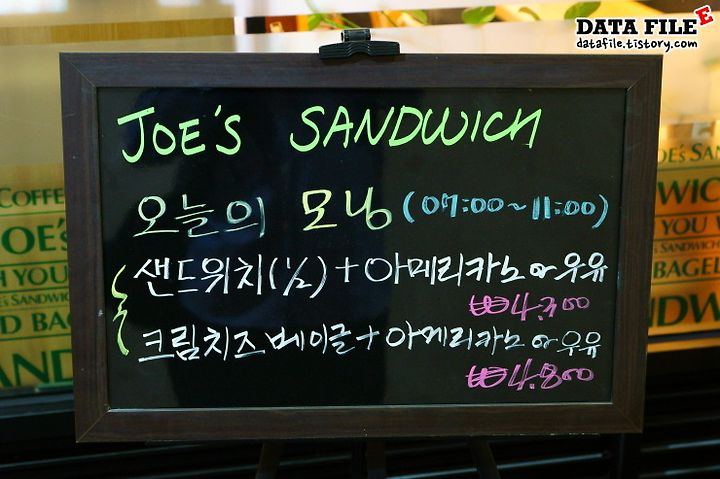 DATA FILE E
datafile.tistory.com
JOE'S SANDWICH
오늘의 모닝 (07:00~11:00)
샌드위치(1/2) + 아메리카노 or 우유
₩4.300
크림치즈 베이글 + 아메리카노 or 우유
₩4.800
COFFEE
JOE'S
YOU
JOE'S SANDWICH
BAGEL
JOE'S SAN
YOU
SANDWICH
BAGEL